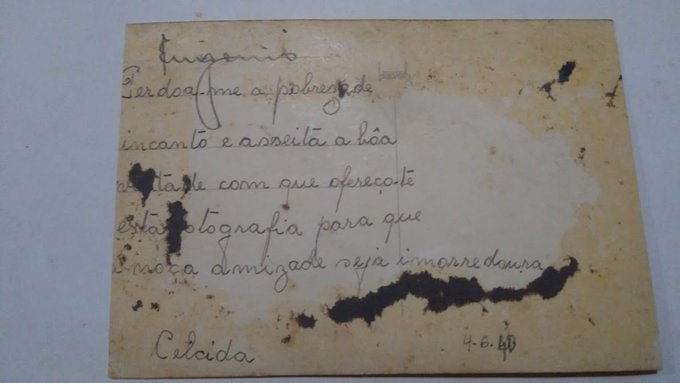 Eugenio
Perdoa-me a pobreza de
incanto e asseita a bôa
com que ofereço-te
esta fotografia para que
a noça amizade seja imorredoura
Celcida
4-6-40